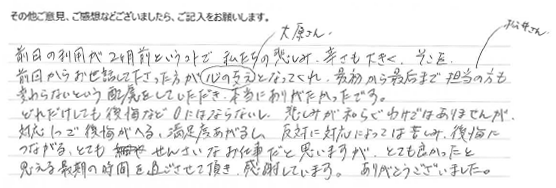 その他ご意見、ご感想などございましたら、ご記入をお願いします。
大原さん
前回の利用が2ヶ月前というコトで 私たちの悲しみ、辛さも大きく、そこを
前回からお世話して下さった方が 心の支え となってくれ、最初から最後まで 担当の方も
変わらないという 配慮をしていただき 本当にありがたかったです。
どれだけしても 後悔など 0にはならないし 悲しみが 和らぐわけではありませんが、
対応1つで 後悔がへる、満足度あがるし、反対に対応によっては 苦しみ、後悔に
つながる、とても せんさいな お仕事だと 思いますが、とても良かったと
思える最期の時間を過ごさせて頂き、感謝しています。 ありがとうございました。